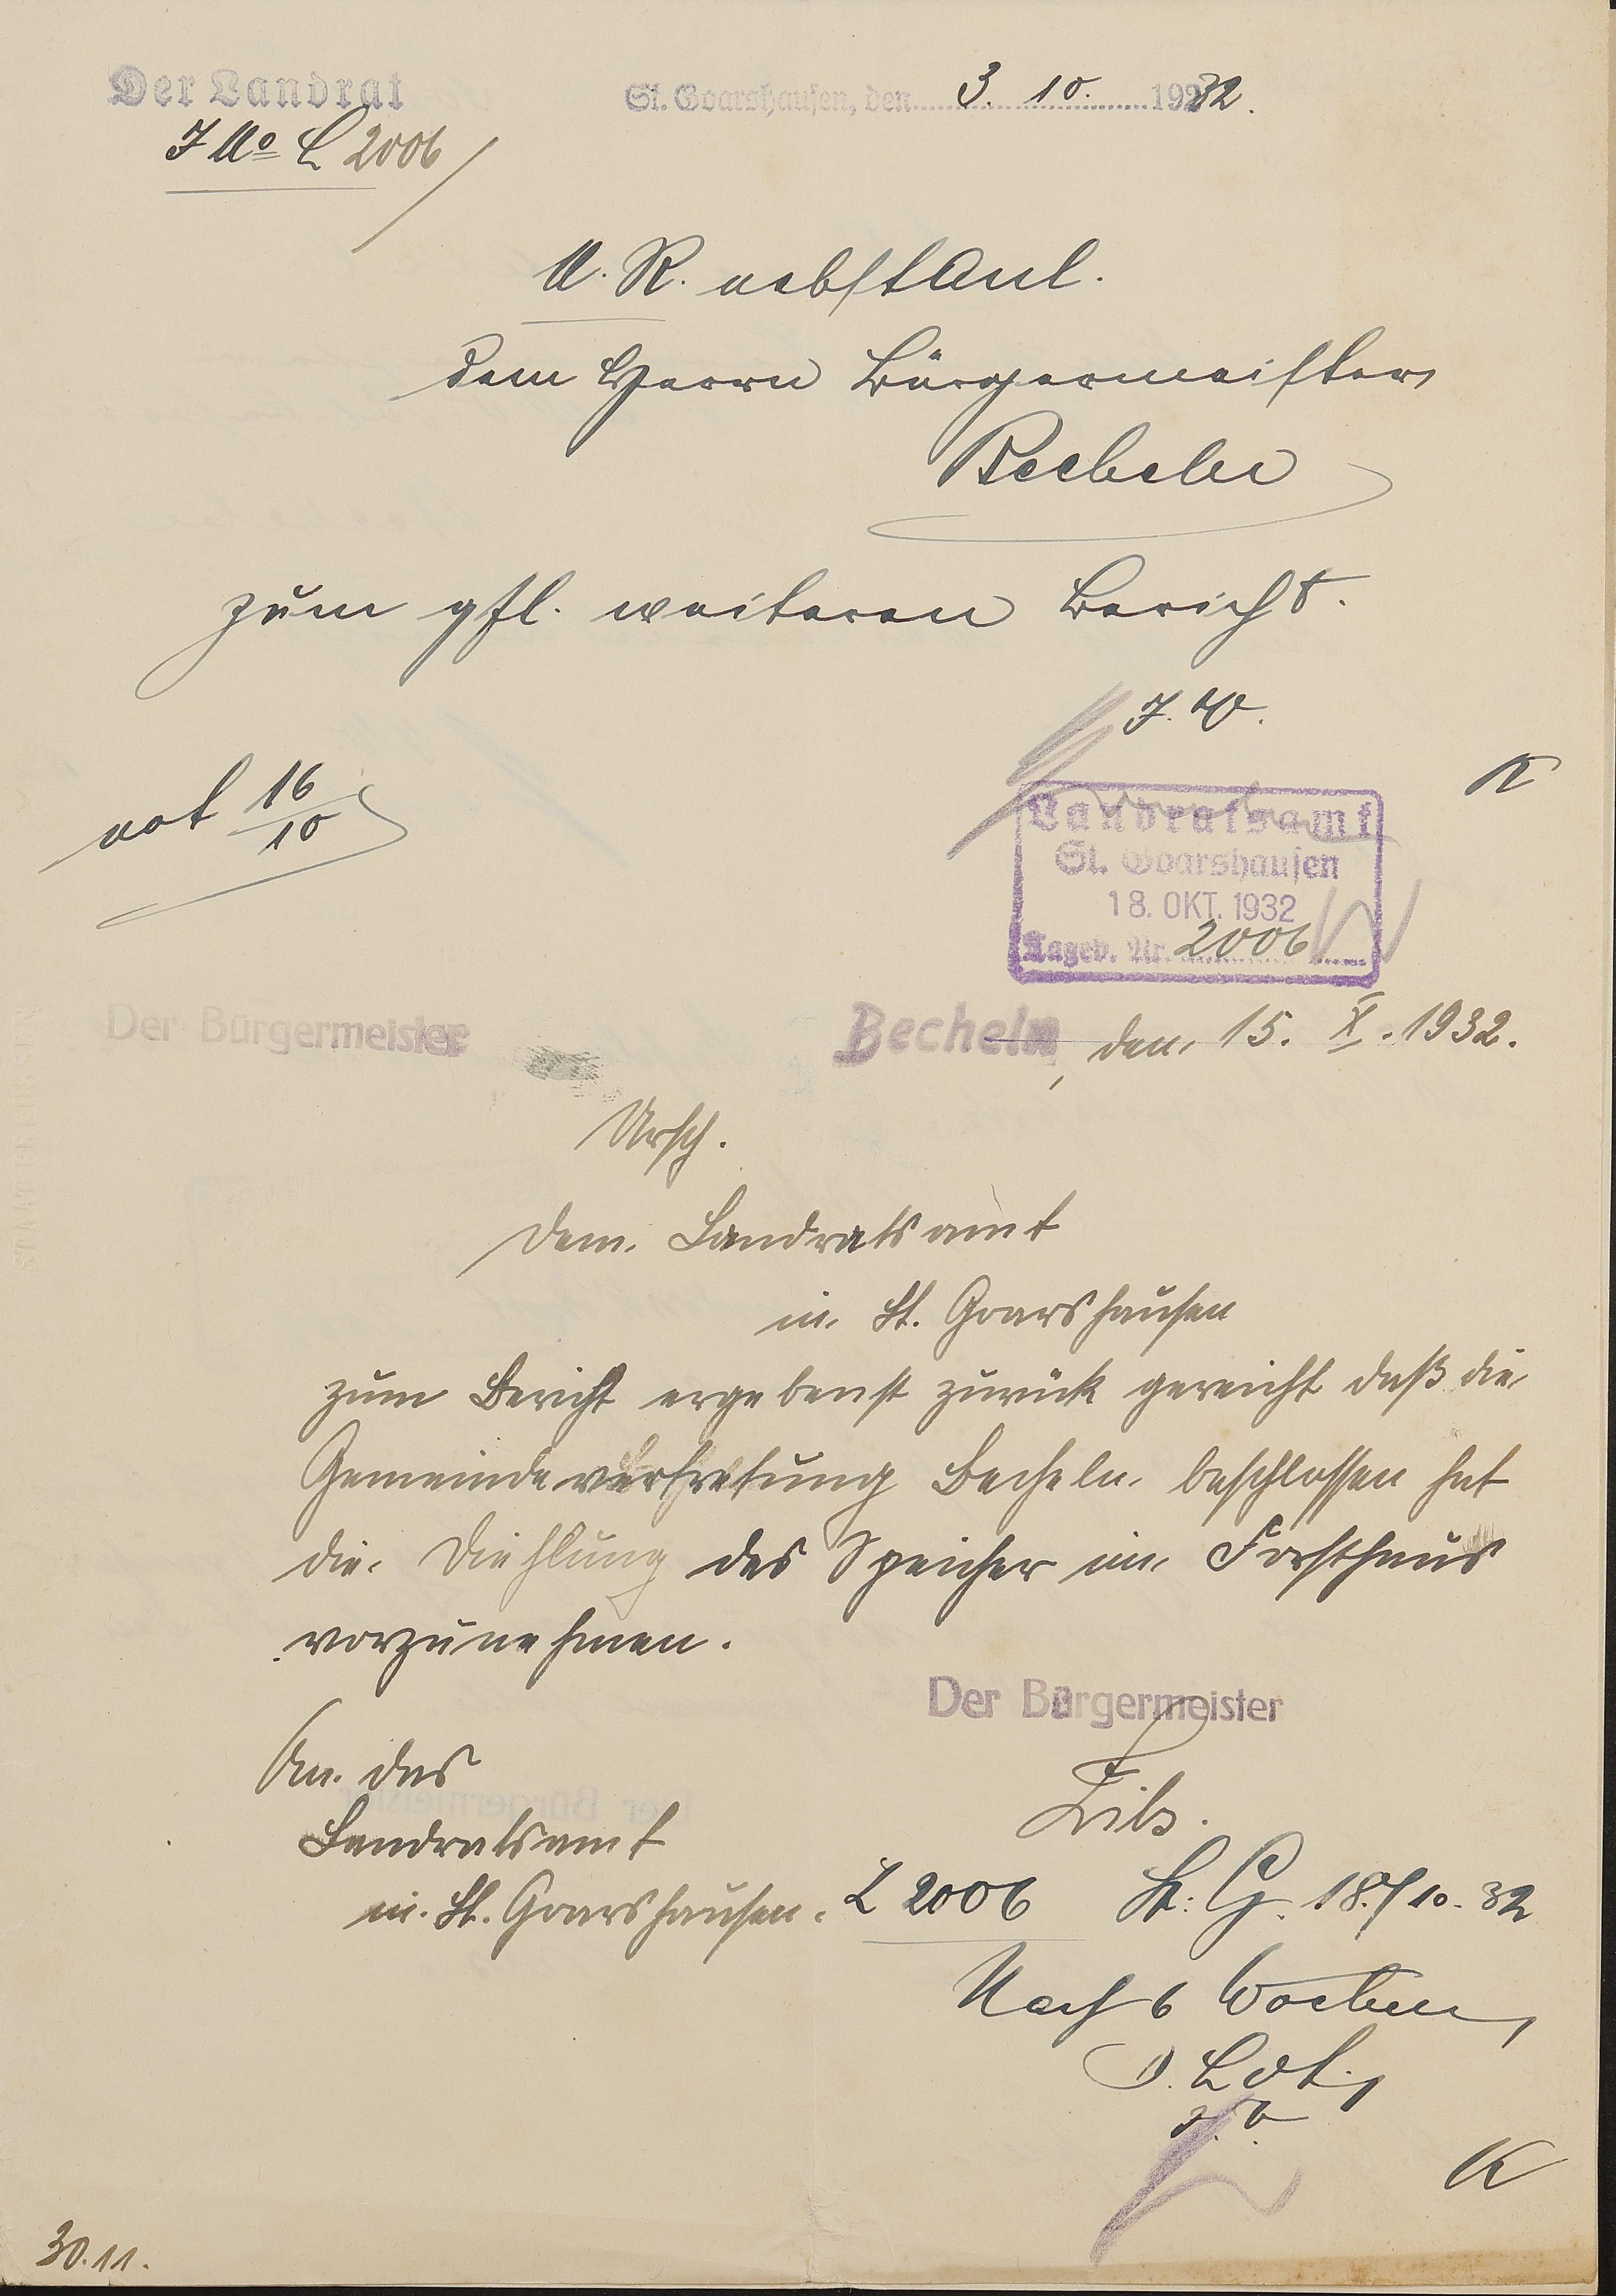 Der Landrat
St. Goarshausen, den 3. 10. 1932.
J No L 2006
U. R. nebst Anl.
dem Herrn Bürgermeister
Becheln
zum gfl. weiteren Bericht.
J. V.
K
not 16/10
Landratsamt
St. Goarshausen
18. OKT. 1932
Tageb. Nr. 2006
Der Bürgermeister
Becheln, den 15. X. 1932.
Ursch.
dem Landratsamt
in St. Goarshausen
zum Bericht ergebenst zurück gereicht daß die
Gemeindevertretung Becheln beschlossen hat
die Diehlung des Speicher im Forsthaus
vorzunehmen.
Der Bürgermeister
An das
Landratsamt
in St. Goarshausen.
L 2006 St. G. 18./10. 32
Nach 6 Wochen
D. Ldt.
J. V.
K
30.11.